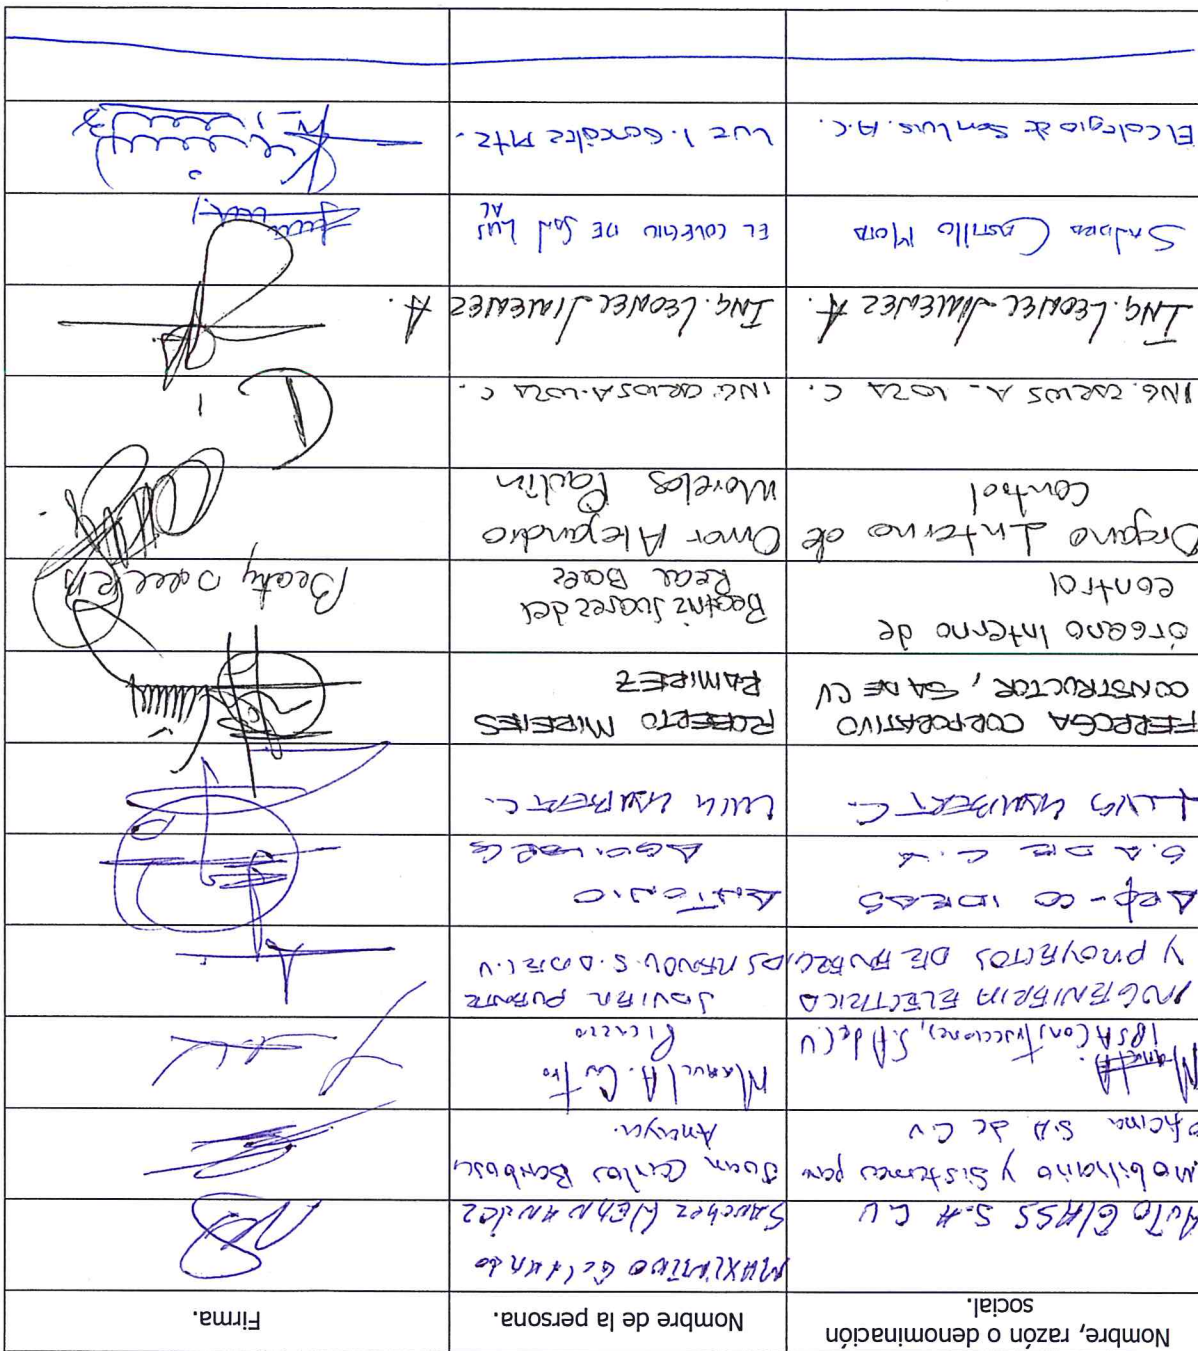 Nombre, razón o denominación social.
Nombre de la persona.
Firma.
AUTO GLASS S.A CV
MAXIMINO GELUNDO
SANCHEZ HERNANDEZ
Mobiliario y Sistemas para
oficina S.A de C.V
Juan Carlos Barbosa
Amaya.
Manuel A.
IPSA Construcciones, S.A de CV
Manuel A. Castro
Picazzo
INGENIERIA ELECTRICA
Y PROYECTOS DE
S.A DE C.V
JAVIER PUENTE
IDEAS
S.A DE C.V
ANTONIO
LUIS LAMBERT C.
LUIS LAMBERT C.
FERROGA CORPORATIVO
CONSTRUCTOR, SA DE CV
ROBERTO MIRELES
RAMIREZ
órgano Interno de
control
Beatriz Juarez del
Real Baez
Beaty
Organo Interno de
Control
Omar Alejandro
Morelos Paulin
ING. CARLOS A. LOZA C.
ING. CARLOS A. LOZA C.
ING. LEONEL JIMENEZ A.
ING. LEONEL JIMENEZ A.
Sandra Castillo Mota
EL COLEGIO DE SAN LUIS
AC
El Colegio de San Luis. A.C.
Luz I. González Mtz.